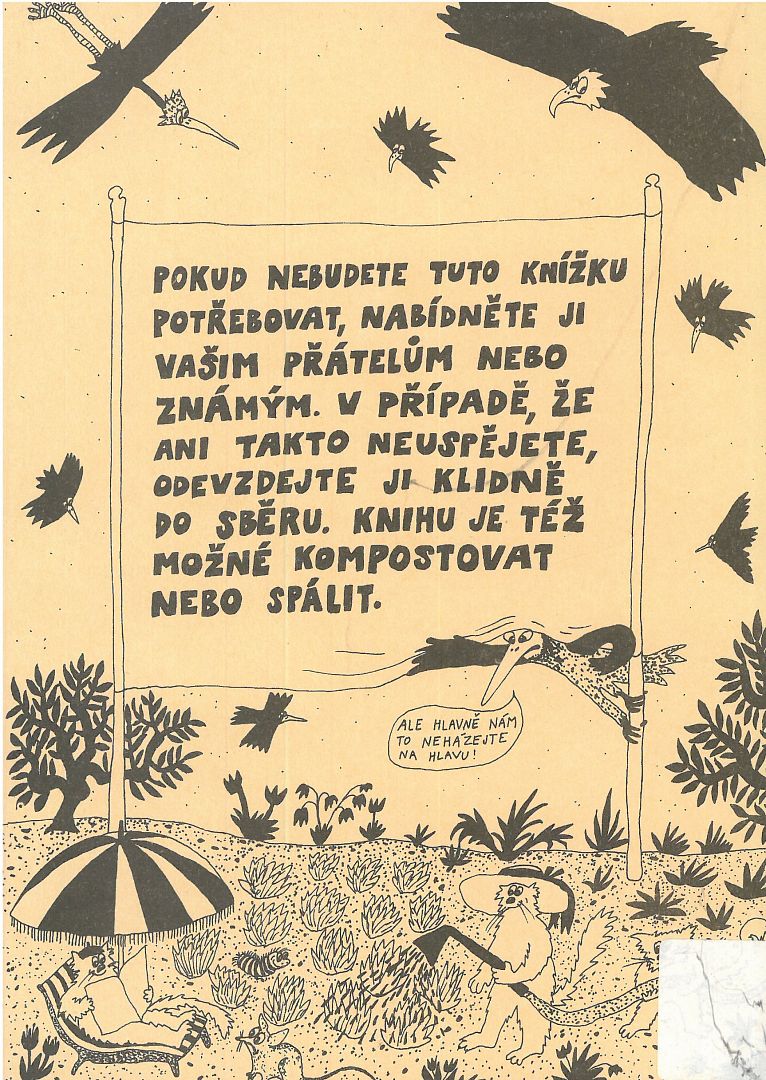 POKUD NEBUDETE TUTO KNÍŽKU
POTŘEBOVAT, NABÍDNĚTE JI
VAŠIM PŘÁTELŮM NEBO
ZNÁMÝM. V PŘÍPADĚ, ŽE
ANI TAKTO NEUSPĚJETE,
ODEVZDEJTE JI KLIDNĚ
DO SBĚRU. KNIHU JE TÉŽ
MOŽNÉ KOMPOSTOVAT
NEBO SPÁLIT.
ALE HLAVNĚ NÁM
TO NEHÁZEJTE
NA HLAVU!